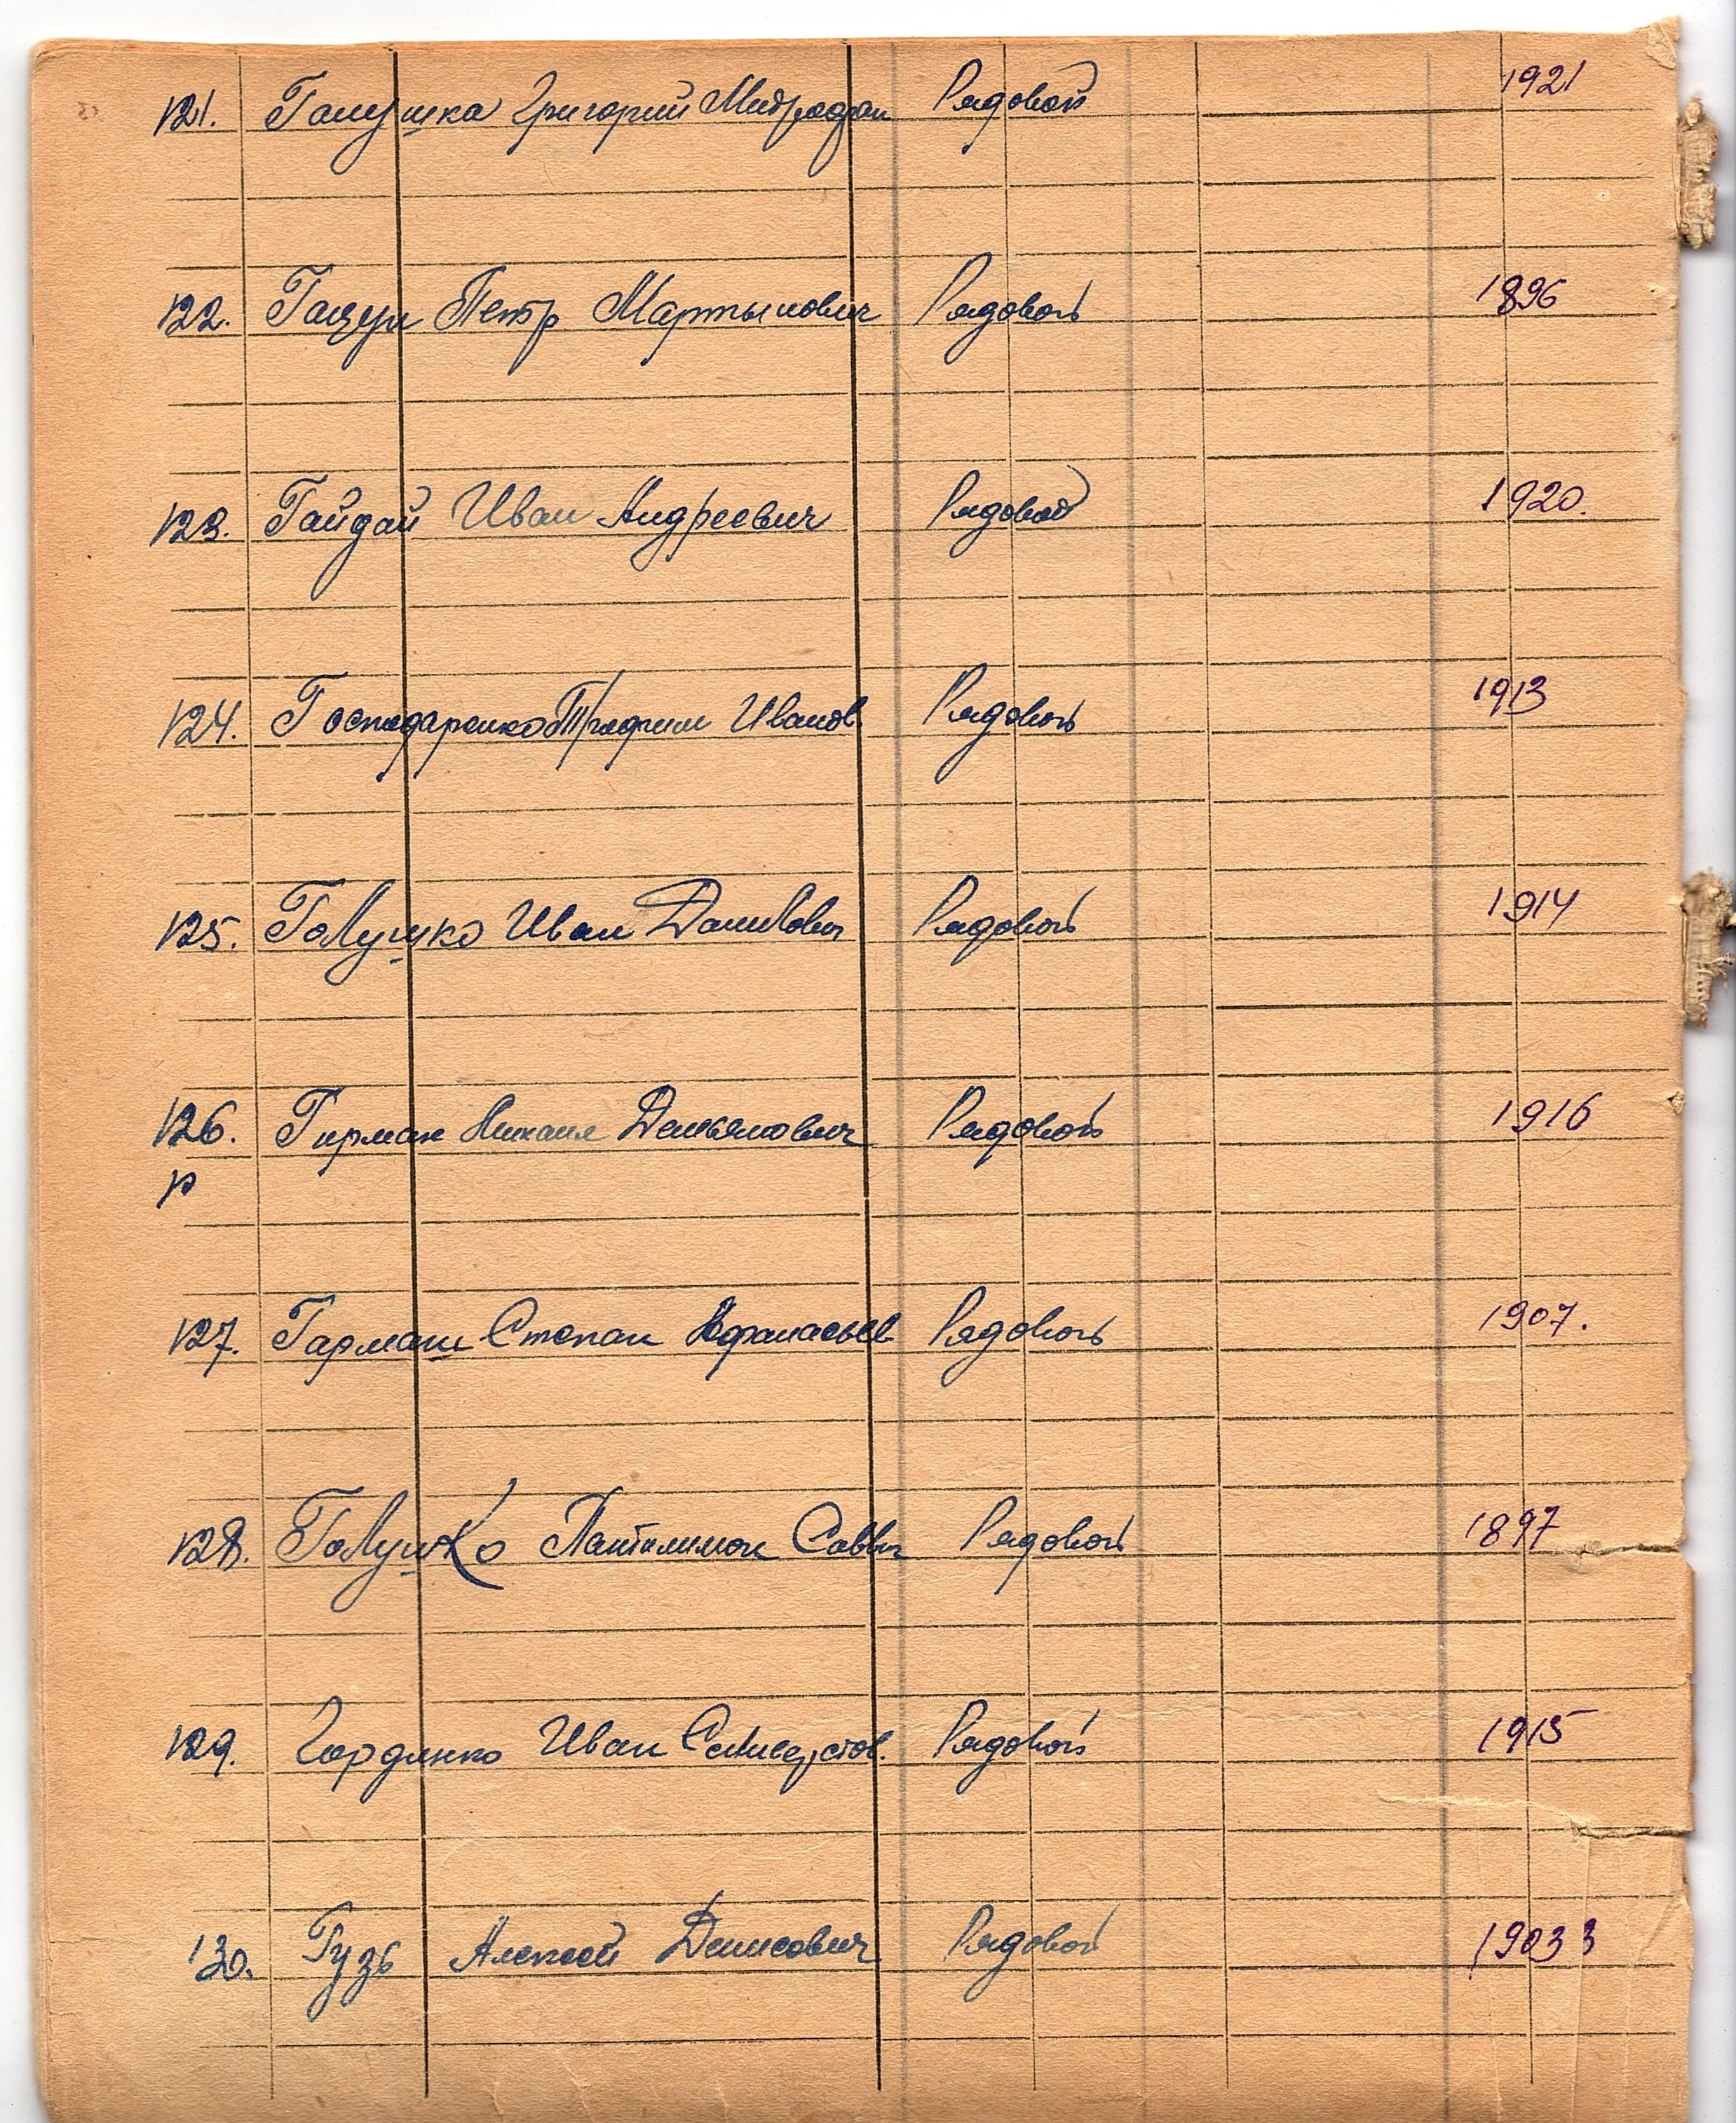 121. Галушка Григорий Митрофан Рядовой 1921
122. Гацул Петр Мартынович Рядовой 1896
123. Гайдай Иван Андреевич Рядовой 1920.
124. Господаренко Трофим Иванов. Рядовой 1913
125. Голушко Иван Данилович Рядовой 1914
126. Гирман Михаил Демьянович Рядовой 1916
р
127. Гармаш Степан Афанасьев Рядовой 1907.
128. Голушко Пантилимон Саввич Рядовой 1897
129. Гордиенко Иван Рядовой 1915
130. Гузь Алексей Денисович Рядовой 1903 3